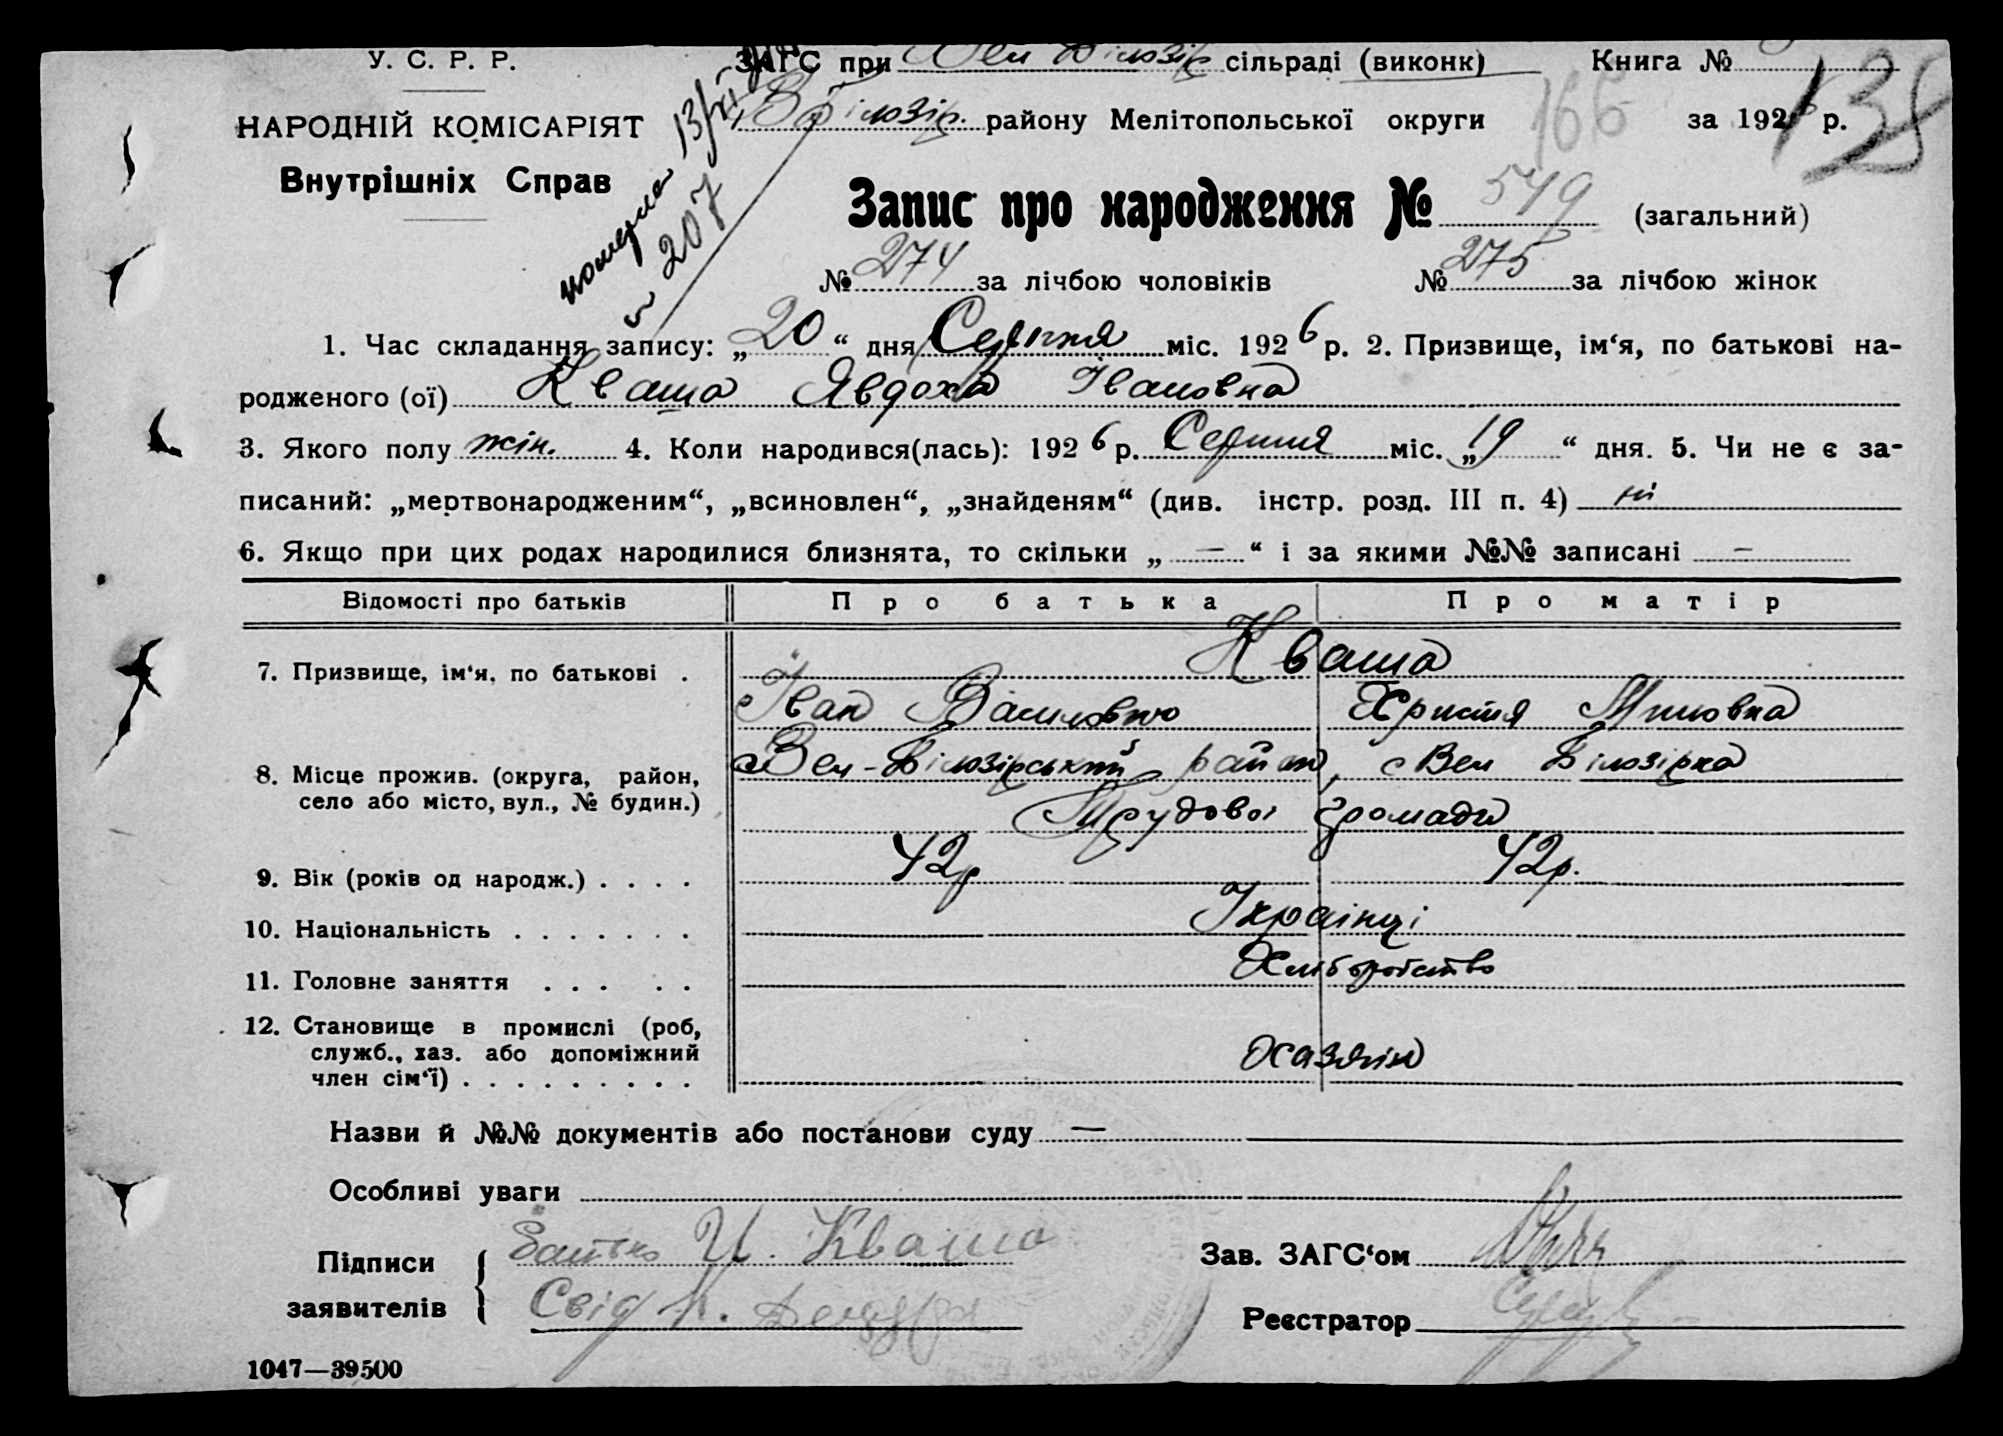 У. С. Р. Р.
ЗАГС при Вел Білозір сільраді (виконк)
Книга №
НАРОДНІЙ КОМІСАРІЯТ
Внутрішніх Справ
В Білозір. району Мелітопольської округи
166
за 1926 р.
померла 13/
207
Запис про народження № 549 (загальний)
№ 274 за лічбою чоловіків № 275 за лічбою жінок
1. Час складання запису: „20“ дня Серпня міс. 1926 р. 2. Призвище, ім‘я, по батькові на-
родженого (ої) Кваша Явдоха Івановна
3. Якого полу жін. 4. Коли народився(лась): 1926 р. Серпня міс. „19“ дня. 5. Чи не є за-
писаний: „мертвонародженим“, „всиновлен“, „знайденям“ (див. інстр. розд. III п. 4) ні
6. Якщо при цих родах народилися близнята, то скільки „ — “ і за якими №№ записані —
Відомості про батьків Про батька Про матір
Кваша
7. Призвище, ім‘я, по батькові .
Іван Христя
8. Місце прожив. (округа, район,
село або місто, вул., № будин.)
Вел-Білозірський район, с Вел Білозірка
Трудової громади
9. Вік (років од народж.) . . . . 42р 42р.
10. Національність . . . . . . . Українці
11. Головне заняття . . . . . Хліборобство
12. Становище в промислі (роб,
служб., хаз. або допоміжний
член сім‘ї) . . . . . . . . . Хазяїн
Назви й №№ документів або постанови суду —
Особливі уваги
Підписи
заявителів
Батько И. Кваша
Свід
Зав. ЗАГС‘ом
Реєстратор
1047—39500